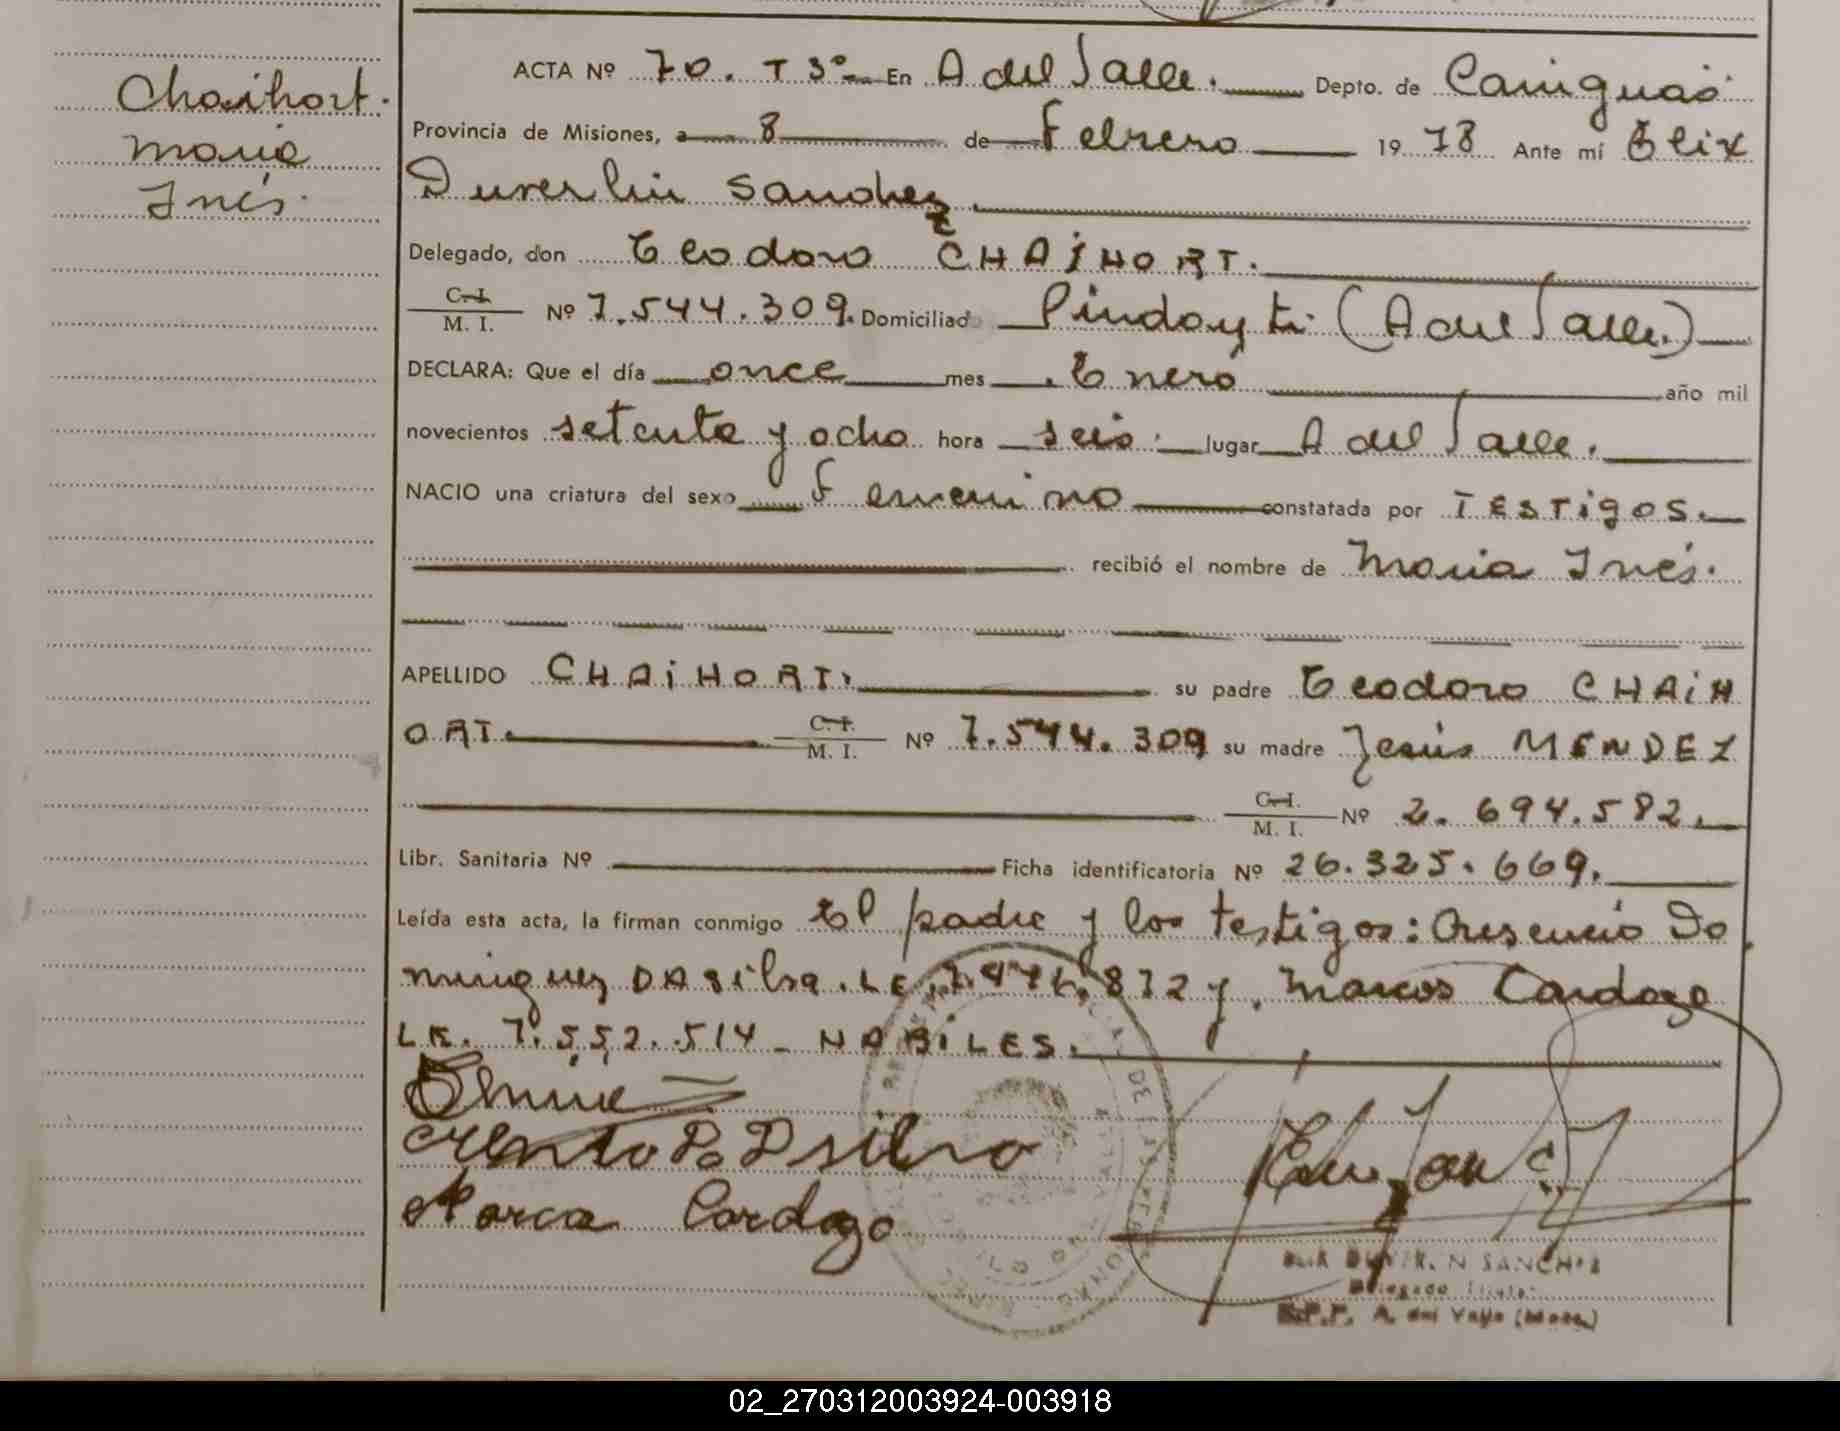 Chaihort.
Maria
Inés.
ACTA Nº 70. T 3º En A del Valle. Depto. de Cainguás
Provincia de Misiones, a 8 de Febrero 19 78 Ante mí Elix
Duverlin Sanchez
Delegado, don Teodoro CHAIHORT.
C.I. / M. I. Nº 7.544.309. Domiciliado Pindayti (A del Valle.)
DECLARA: Que el día once mes Enero año mil
novecientos setenta y ocho hora seis lugar A del Valle.
NACIO una criatura del sexo Femenino constatada por TESTigOS.
recibió el nombre de Maria Inés.
APELLIDO CHAiHORT. su padre Teodoro CHAiH
ORT. C.I. / M. I. Nº 7.544.309 su madre Jesús MENDEZ
C.I. / M. I. Nº 2.694.582.
Libr. Sanitaria Nº Ficha identificatoria Nº 26.325.669.
Leída esta acta, la firman conmigo El padre y los testigos: Cresencio Do
minguez DA Silva. LE. 872 y Marcos Cardozo
LE. 7.552.514 - HABiLES.
Marca Cordozo
SANCHEZ
Delegado Titular
A. del Valle (Mnes.)
02_270312003924-003918